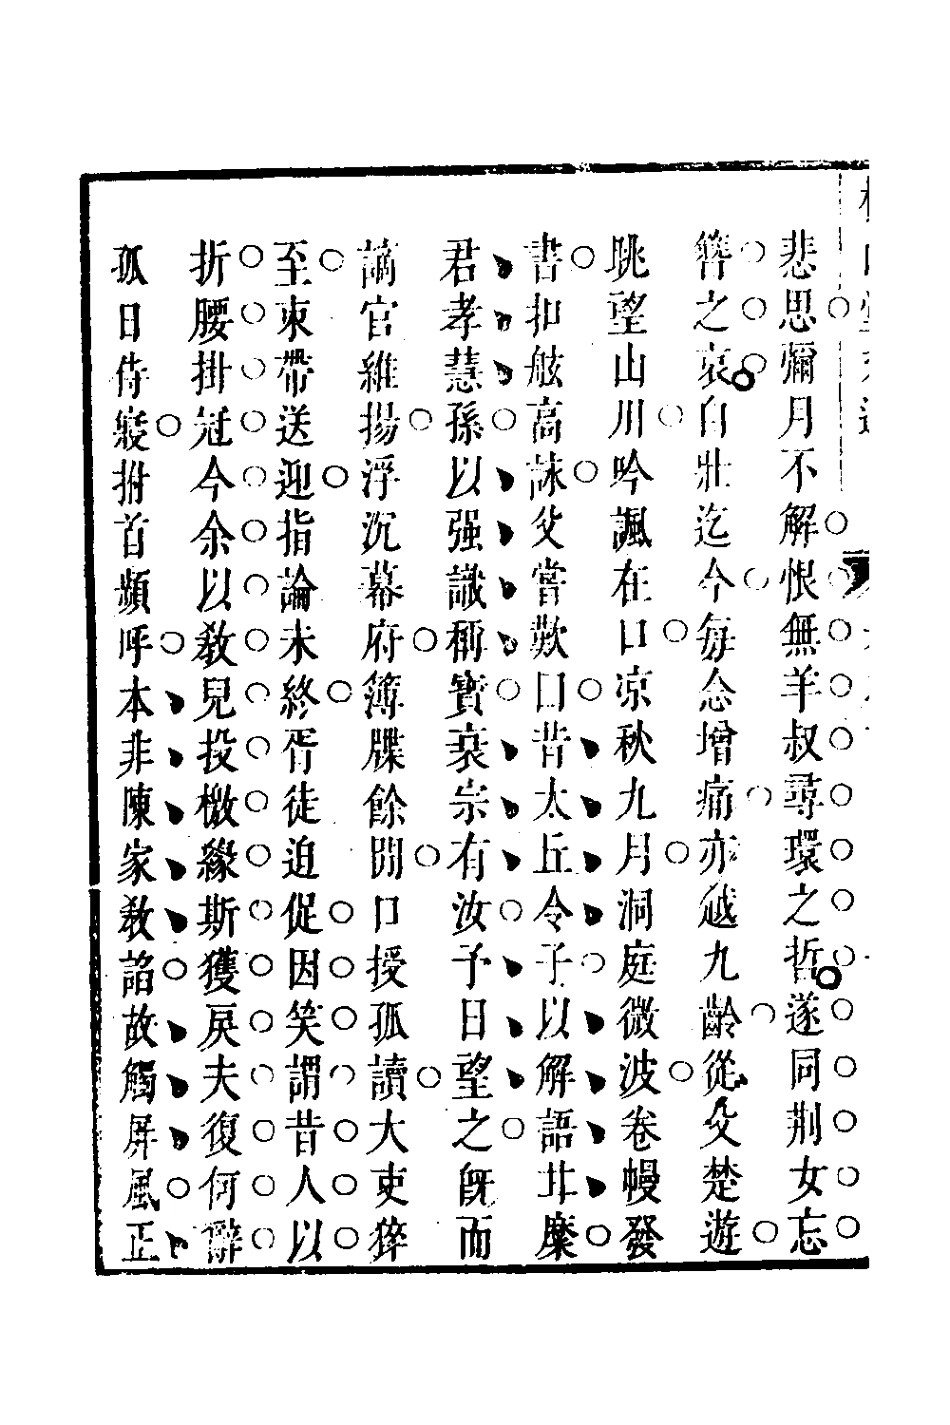 悲思彌月不解恨無羊叔尋環之哲遂同荆女忘
簪之哀自壯迄今每念增痛亦越九齡從父楚遊
眺望山川吟諷在口凉秋九月洞庭微波卷幔發
書扣舷高詠父嘗歎曰昔太丘令子以解語糜
君孝慧孫以强識稱寳衰宗有汝予日望之旣而
謫官維揚浮沉幕府簿牒餘閒口授孤讀大吏猝
至束帶送迎指論未終胥徒迫促因笑謂昔人以
折腰掛冠今余以敎兒投檄緣斯獲戾夫復何辭
孤日侍寢拊首頻呼本非陳家敎諂故觸屏風正